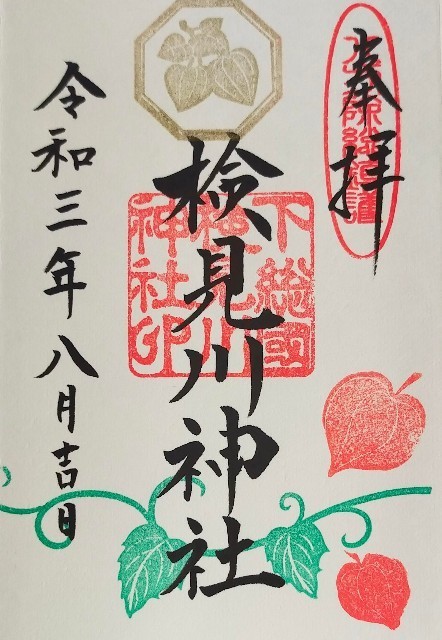 奉拝
検見川神社
下総國
検見川
神社印
令和三年八月吉日